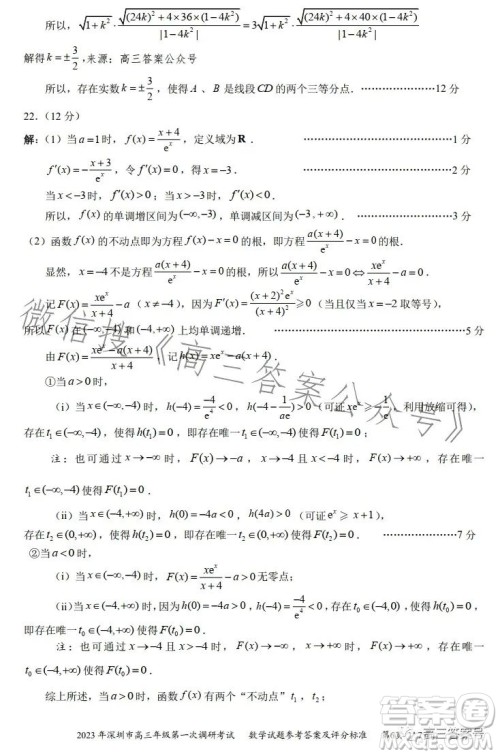 所以，√(1+k²)·√((24k)²+4×36×(1-4k²))/|1-4k²| = 3√(1+k²)·√((24k)²+4×40×(1-4k²))/|1-4k²|
解得 k=±3/2，来源：高三答案公众号
所以，存在实数 k=±3/2，使得 A、B 是线段 CD 的两个三等分点．………………12 分
22．（12 分）
解：（1）当 a=1 时，f(x)=(x+4)/eˣ，定义域为 R．………………1 分
f′(x)=-(x+3)/eˣ，令 f′(x)=0，得 x=-3．………………2 分
当 x<-3 时，f′(x)>0；当 x>-3 时，f′(x)<0．
所以，f(x) 的单调增区间为 (-∞,-3)，单调减区间为 (-3,+∞)．………………3 分
（2）函数 f(x) 的不动点即为方程 f(x)-x=0 的根，即方程 a(x+4)/eˣ-x=0 的根．
显然，x=-4 不是方程 a(x+4)/eˣ-x=0 的根，所以 a(x+4)/eˣ-x=0⇔xeˣ/(x+4)-a=0．
记 F(x)=xeˣ/(x+4)-a（x≠-4），因为 F′(x)=(x+2)²eˣ/(x+4)²⩾0（当且仅当 x=-2 取等号），
所以 F(x) 在 (-∞,-4) 和 (-4,+∞) 上均单调递增．………………5 分
由 F(x)=(xeˣ-a(x+4))/(x+4)，记 h(x)=xeˣ-a(x+4)．
①当 a>0 时，
（i）当 x∈(-∞,-4) 时，h(-4)=-4/e⁴<0，
，利用放缩可得），
存在唯一 t₁∈(-∞,-4)，使得 h(t₁)=0，即存在唯一 t₁∈(-∞,-4) 使得 F(t₁)=0．
注：也可通过 x→-∞ 时，F(x)→-a，x→-4 时，F(x)→+∞，存在唯一
t₁∈(-∞,-4) 使得 F(t₁)=0．
（ii）当 x∈(-4,+∞) 时，h(0)=-4a<0，h(4a)>0（可证 eˣ⩾x+1），
存在唯一 t₂∈(0,+∞)，使得 h(t₂)=0，即存在唯一 t₂∈(0,+∞) 使得 F(t₂)=0．………………7 分
②当 a<0 时，
（i）当 x∈(-∞,-4) 时，F(x)=xeˣ/(x+4)-a>0 无零点；
（ii）当 x∈(-4,+∞) 时，因为 h(0)=-4a>0，h(-4)=-4/e⁴<0，存在唯一 t₀∈(-4,0)，使得
h(t₀)=0，即存在唯一 t₀∈(-4,+∞) 使得 F(t₀)=0．
注：也可通过 x→-4 时，F(x)→-∞，x→+∞ 时，F(x)→+∞，存在唯一
t₀∈(-4,+∞) 使得 F(t₀)=0．
综上所述，当 a>0 时，函数 f(x) 有两个“不动点” t₁，t₂；
2023 年深圳市高三年级第一次调研考试 数学试题参考答案及评分标准
微信搜《高三答案公众号》